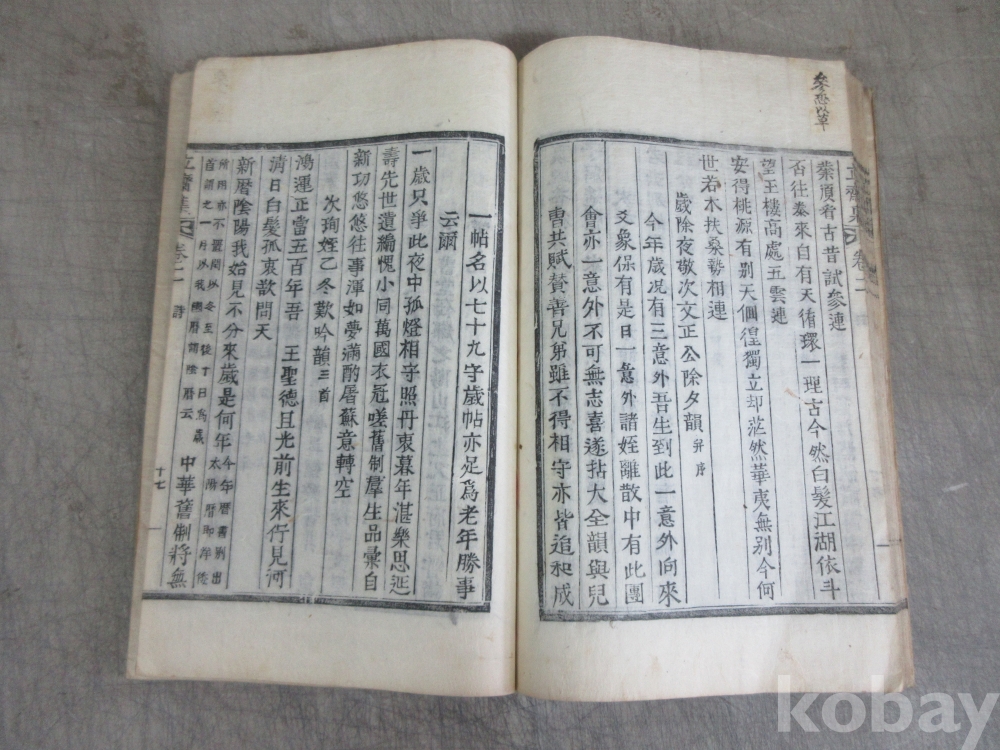 立齋集 卷二
否往泰來自有天循環一理古今然白髮江湖依斗
望王樓高處五雲連
安得桃源有別天個徨獨立却茫然華夷無別今何
世若木扶桑勢相連
歲除夜敬次文正公除夕韻 幷序
今年歲况有三意外吾生到此一意外向來
爻象保有是日一意外諸姪離散中有此團
會亦一意外不可無志喜遂拈大全韻與兒
曹共賦贊善兄弟雖不得相守亦皆追和成
一帖名以七十九守歲帖亦足爲老年勝事
云爾
一歲只爭此夜中孤燈相守照丹衷暮年湛樂思延
壽先世遺編愧小同萬國衣冠嗟舊制羣生品彙自
新功悠悠往事渾如夢滿酌屠蘇意轉空
次珣姪乙冬歎吟韻 三首
鴻運正當五百年吾 王聖德且光前生來佇見河
淸日白髮孤衷欲問天
新曆陰陽我始見不分來歲是何年 今年曆書別出太陽曆卽洋倭
所用亦不置閏以冬至後十日爲歲首謂之一月以我國曆謂陰曆云 中華舊制將無
立齋集 卷二 詩 十七